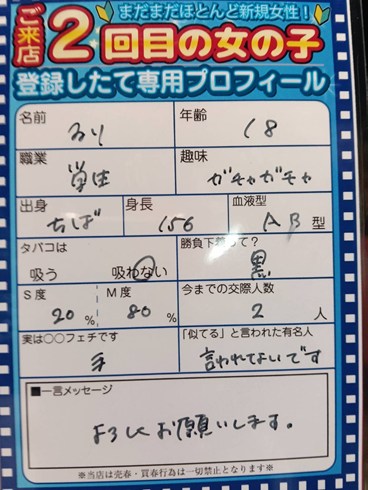 まだまだほとんど新規女性！
ご来店2回目の女の子
登録したて専用プロフィール
名前 るり
年齢 18
職業 学生
趣味 ガチャガチャ
出身 ちば
身長 156
血液型 AB 型
タバコは 吸う 吸わない
勝負下着って？ 黒
S度 20 %
M度 80 %
今までの交際人数 2 人
実は○○フェチです 手
「似てる」と言われた有名人 言われてないです
■一言メッセージ
よろしくお願いします。
※当店は売春・買春行為は一切禁止となります※